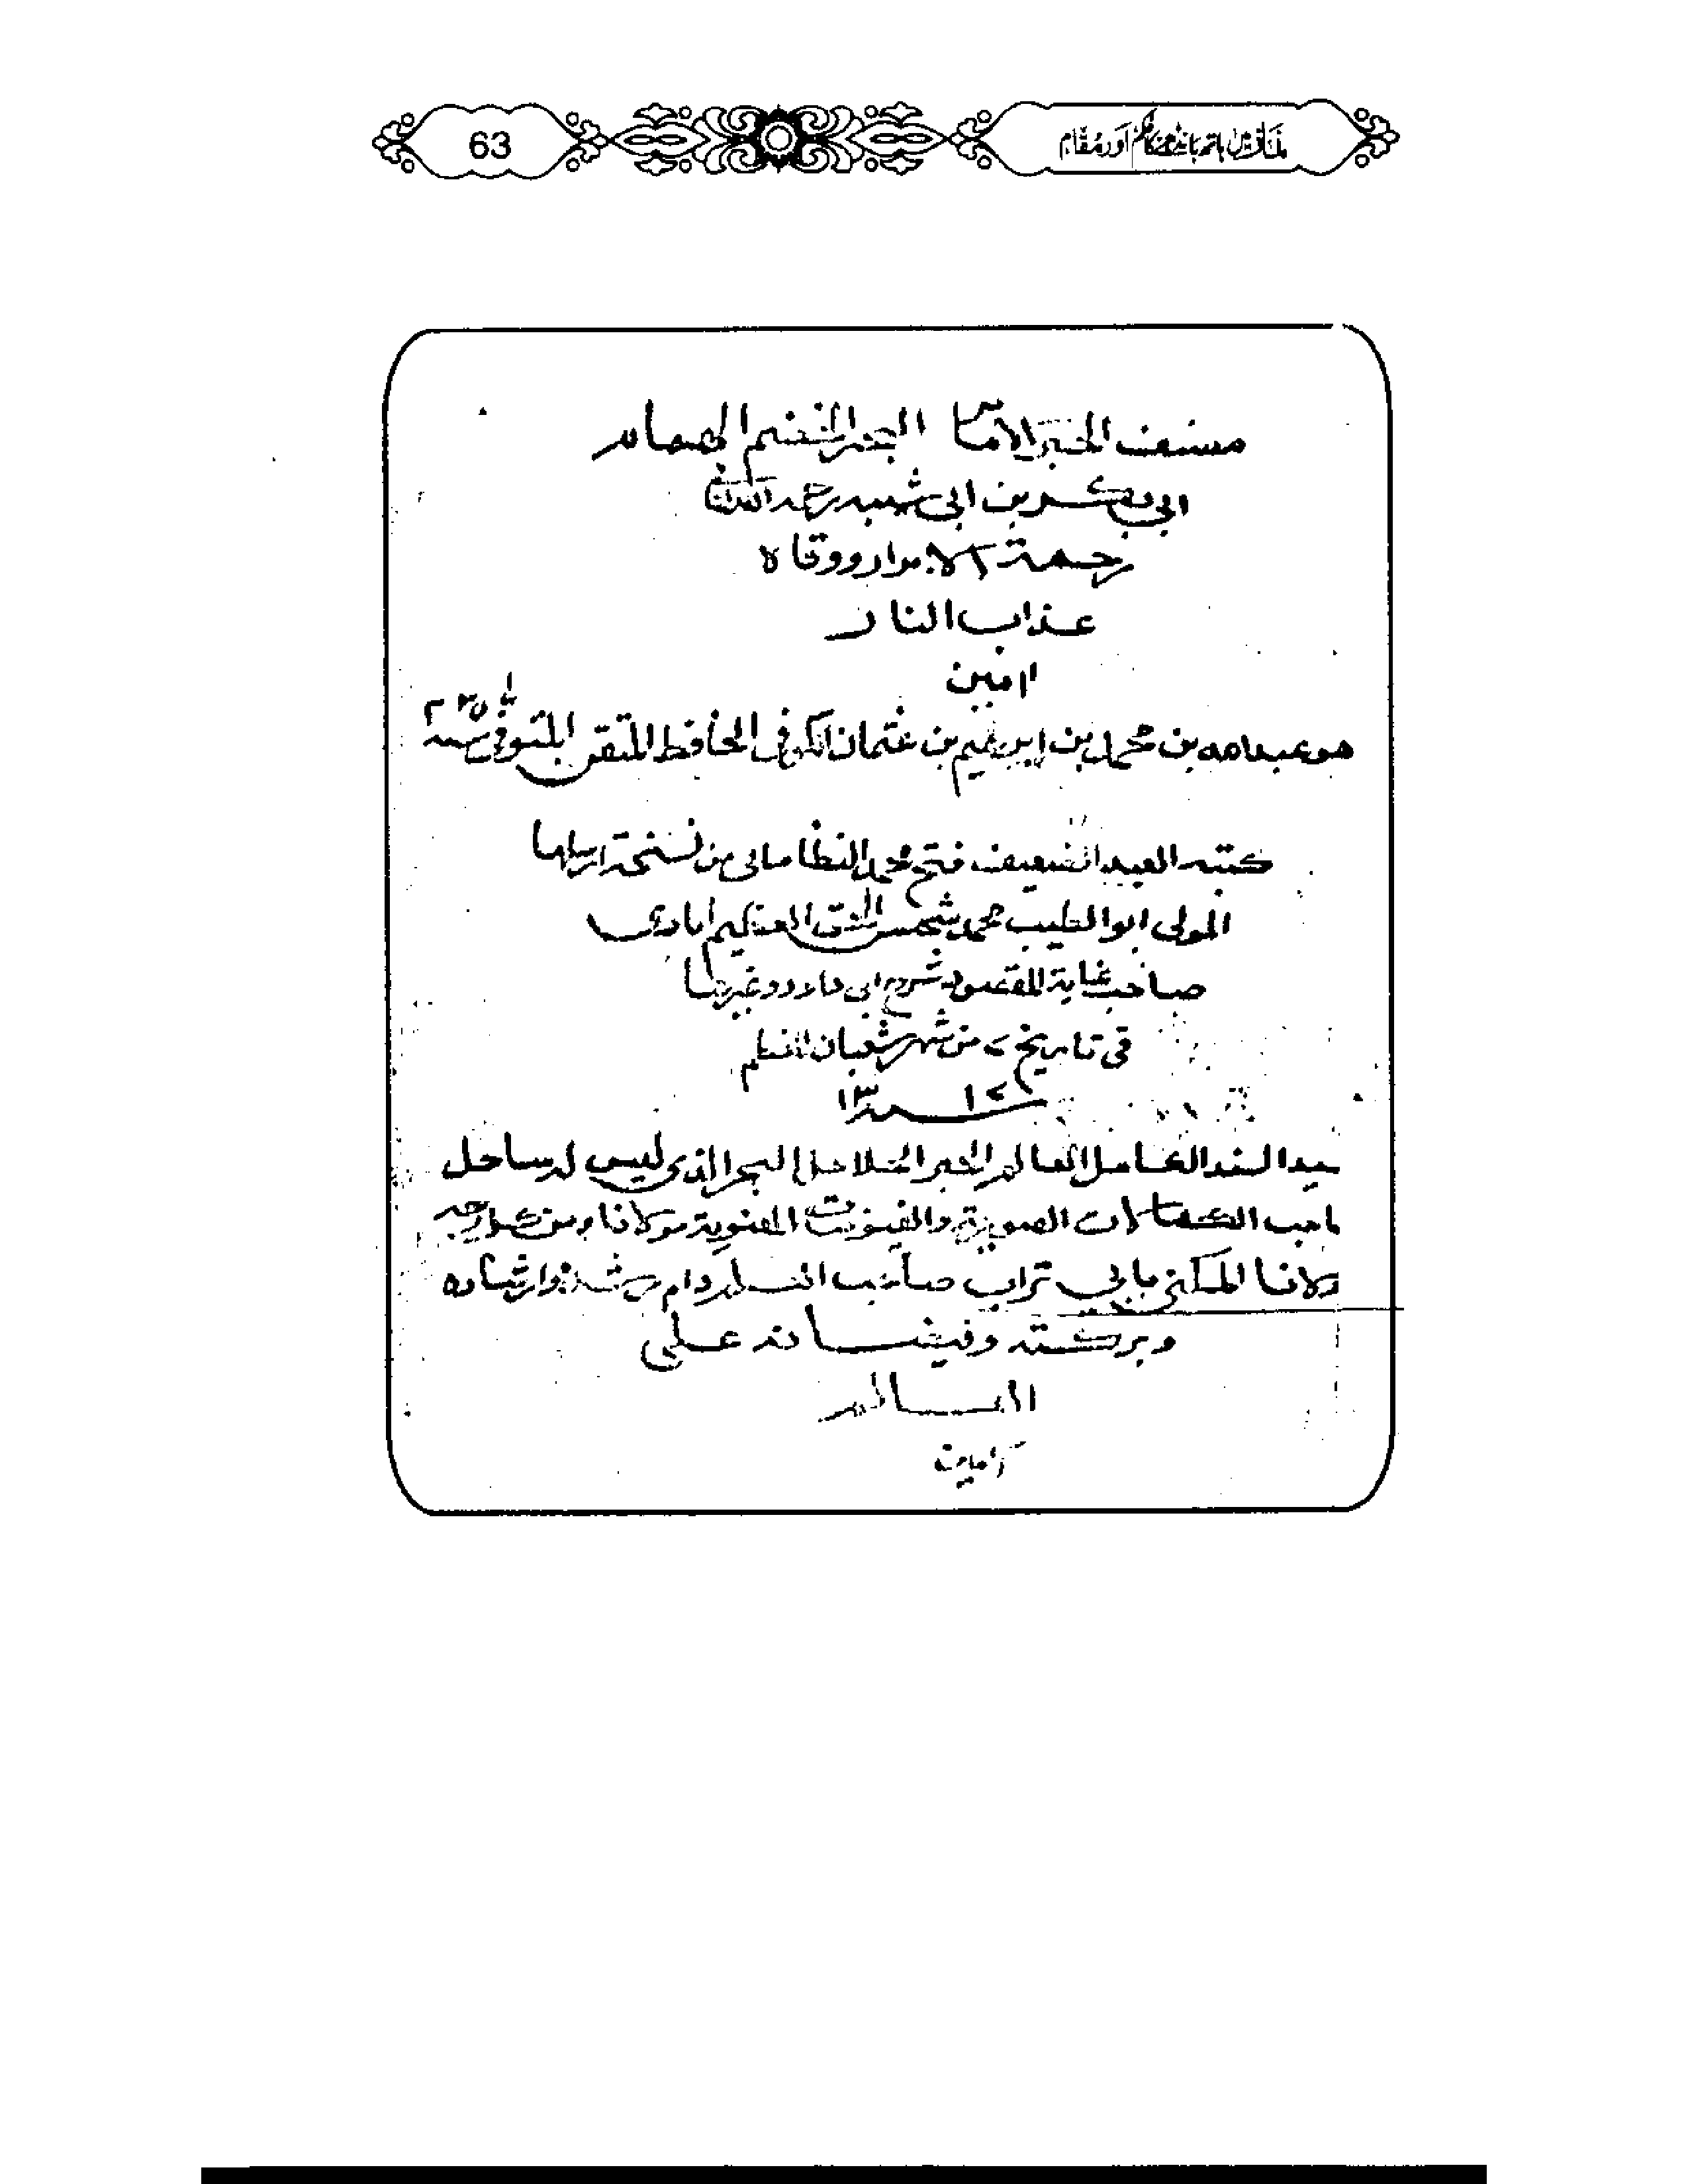 نماز میں ہاتھ باندھنے کا حکم اور مقام
63
مصنف الحبر الامام البحر الخضم الهمام
ابي بكر بن ابي شيبه رحمه الله
رحمة الابرار ووقاه
عذاب النار
امين
هو عبدالله بن محمد بن ابراهيم بن عثمان الكوفي الحافظ المتقن المتوفي سنه ٢٣٥
كتبه العبد الضعيف فتح محمد النظاماني من نسخة ارسلها
المولى ابو الطيب محمد شمس الحق العظيم ابادي
صاحب غاية المقصود شرح ابي داود وغيرها
في تاريخ ٧ من شهر شعبان المعظم
سنه ١٣١٧
سيد السند العامل العالم الحبر البحر الذي ليس له ساحل
احب الكمالات الصورية والفيوضات المعنوية مولانا ومن كل وجه
لانا المكنى بابي تراب صاحب العلم دام وارشاده
وبركته وفيضانه على
العالم
امين